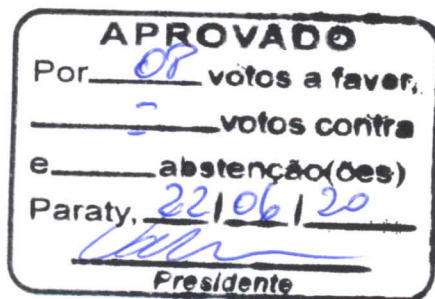 APROVADO
Por 08 votos a favor,
- votos contra
e abstenção(ões)
Paraty, 22/06/20
Presidente